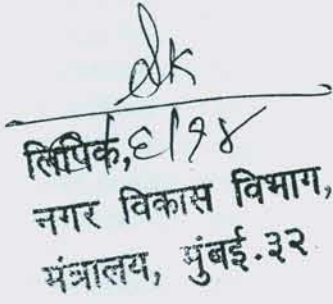 लिपिक, ६/१४
नगर विकास विभाग,
मंत्रालय, मुंबई.३२